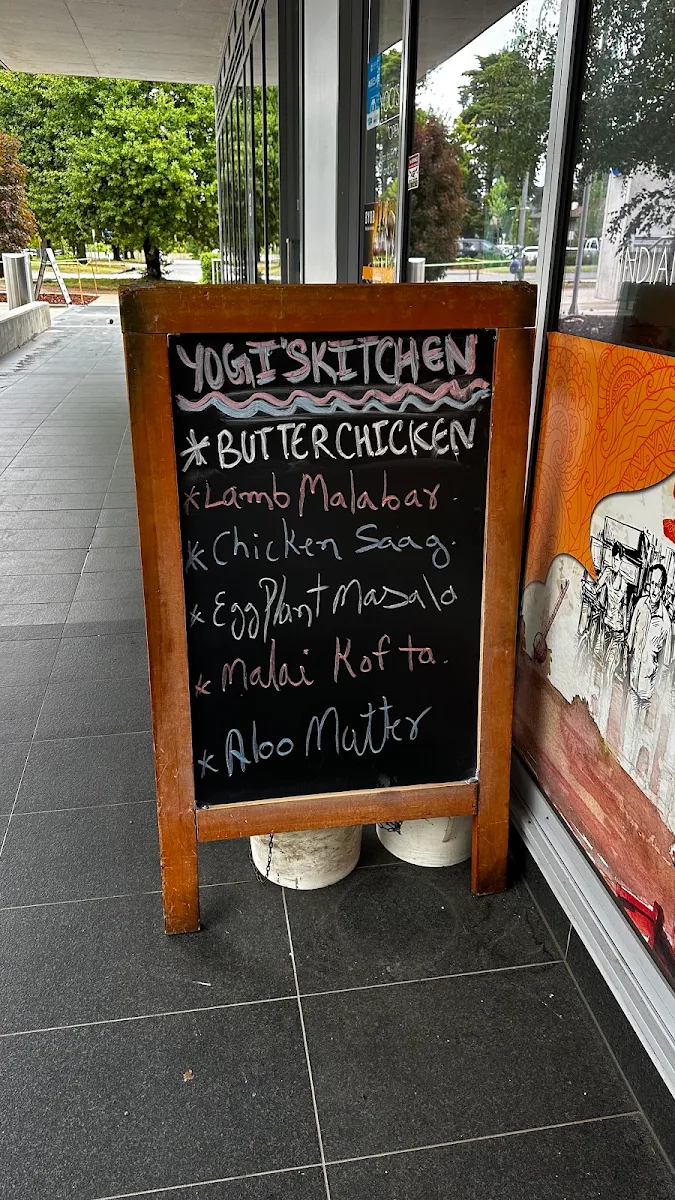 YOGI'S KITCHEN
*BUTTER CHICKEN
*Lamb Malabar.
*Chicken Saag.
*EggPlant Masala
*Malai Kofta.
*Aloo Mutter